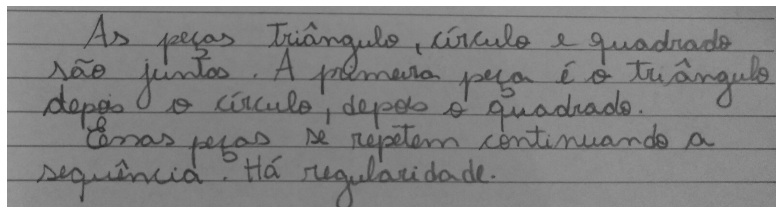 As peças triângulo, círculo e quadrado
são juntos. A primeira peça é o triângulo
depois o círculo, depois o quadrado.
Essas peças se repetem continuando a
sequência. Há regularidade.